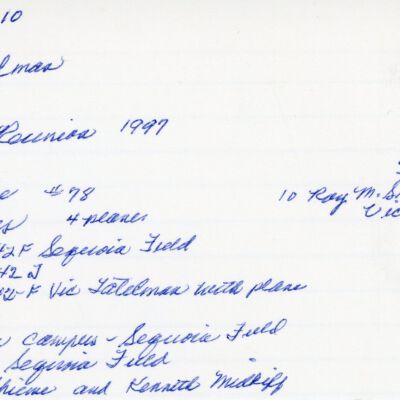 10
man
Reunion 1997
#78
4 planes
42F Sequoia Field
42 J
F Vic Tatelman with plane
campus - Sequoia Field
Sequoia Field
and Kenneth Midkiff
10 Roy M.
Vic